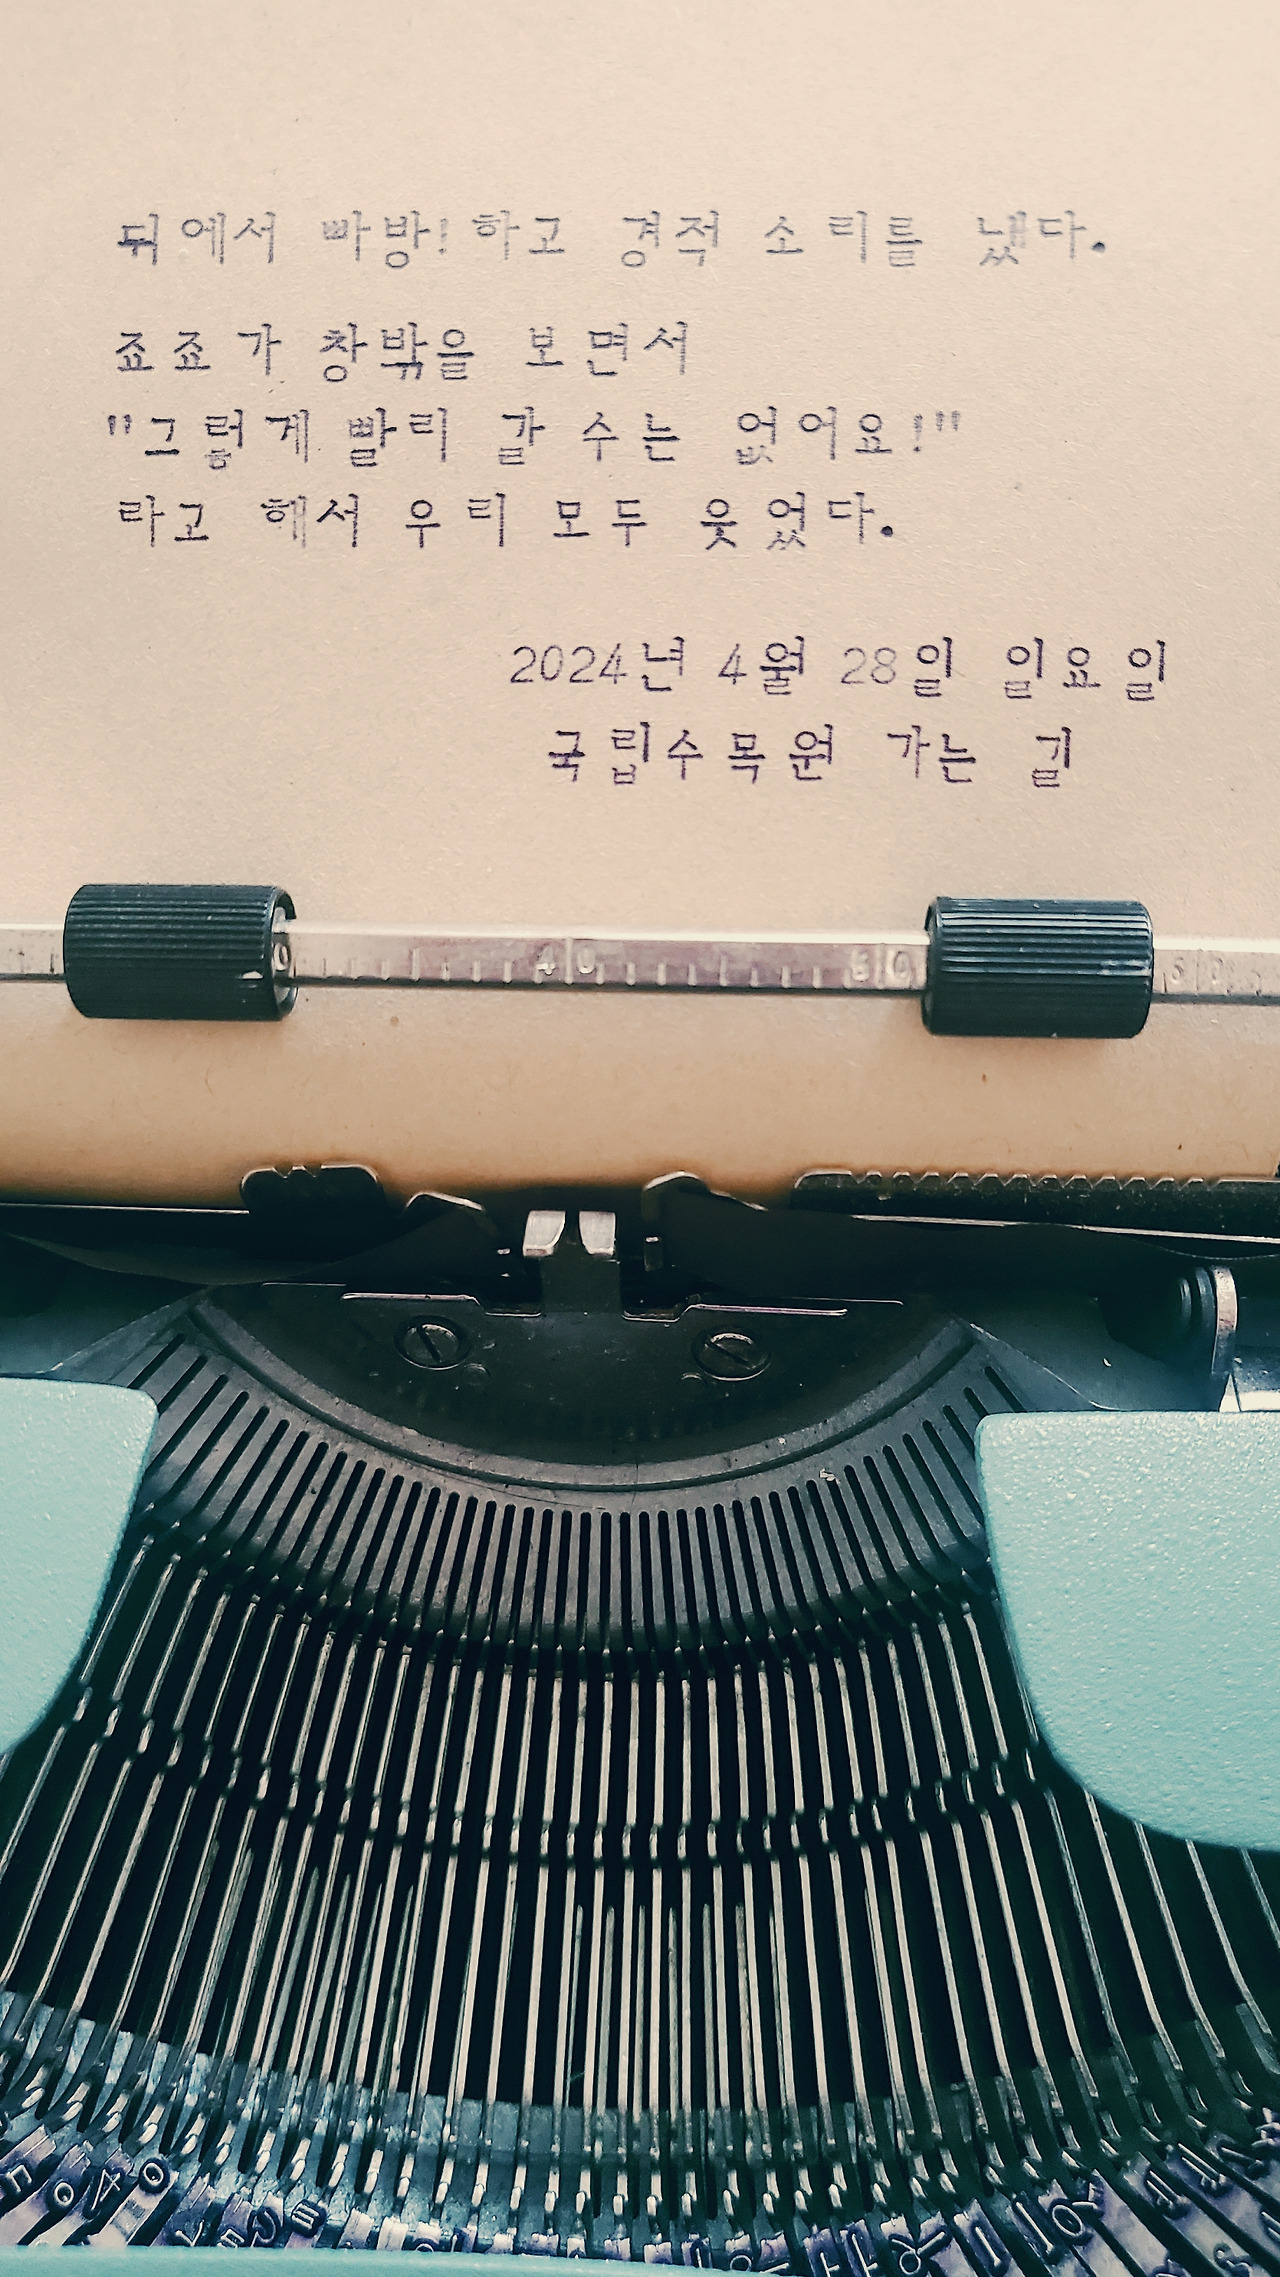 뒤에서 빠방! 하고 경적 소리를 냈다.
죠죠가 창밖을 보면서
"그렇게 빨리 갈 수는 없어요!"
라고 해서 우리 모두 웃었다.
2024년 4월 28일 일요일
국립수목원 가는 길
40
50